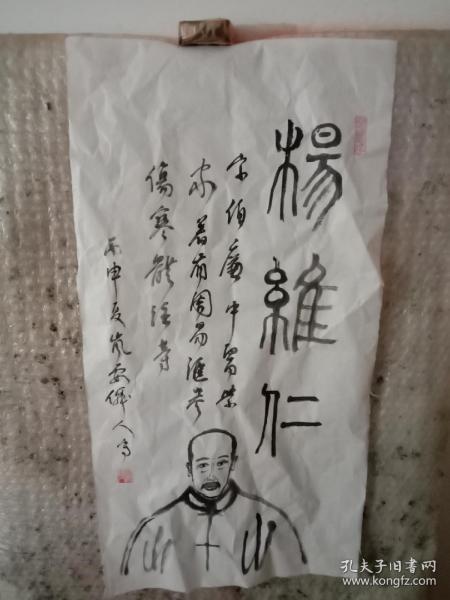 楊維仁
字伯廉中醫世
家著有周易匯參
傷寒體注等
丙申夏嵐安傑人写
孔夫子旧书网
www.kongfz.com